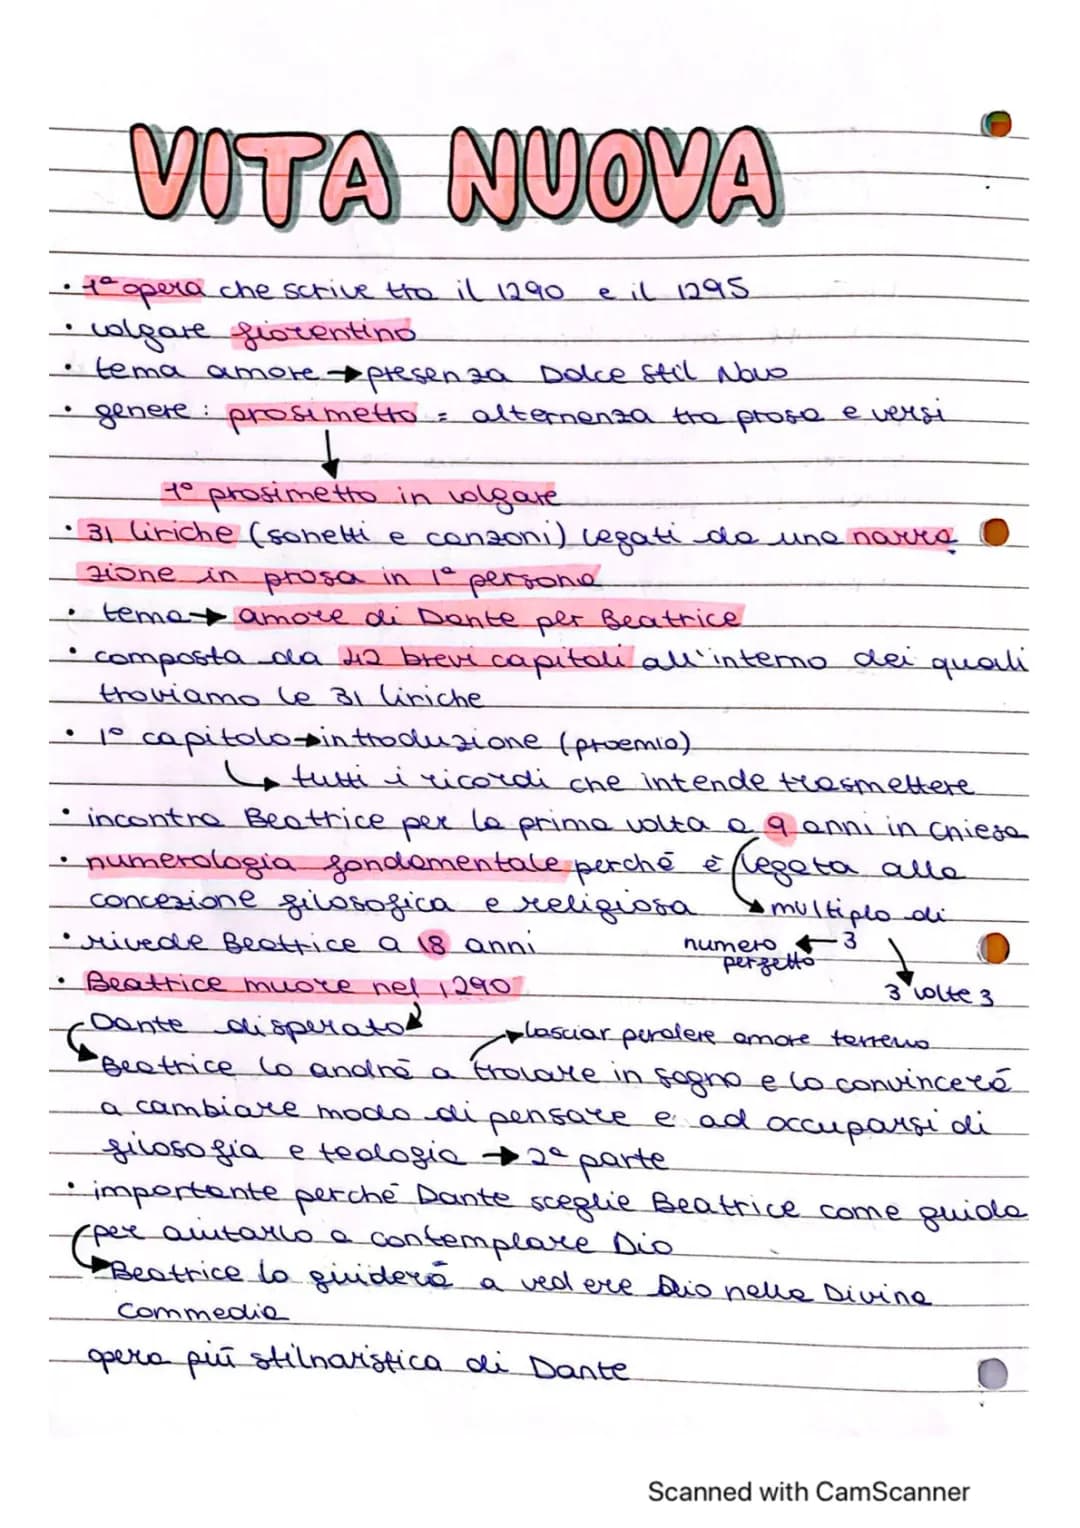 VITA NUOVA
• 1ª opera che scrive tra il 1290 e il 1295
• volgare fiorentino
• tema amore → presenza Dolce Stil Novo
• genere: prosimetro = alternanza tra prosa e versi
↓
1° prosimetro in volgare
• 31 liriche (sonetti e canzoni) legati da una narra
zione in prosa in 1ª persona
• tema → amore di Dante per Beatrice
• composta da 42 brevi capitoli all'interno dei quali
troviamo le 31 liriche
• 1° capitolo → introduzione (proemio)
↳ tutti i ricordi che intende trasmettere
• incontra Beatrice per la prima volta a 9 anni in chiesa
• numerologia fondamentale perché è legata alla
concezione filosofica e religiosa → multiplo di
• rivede Beatrice a 18 anni numero ← 3
perfetto
• Beatrice muore nel 1290 3 volte 3
Dante disperato → lasciar perdere amore terreno
Beatrice lo andrà a trovare in sogno e lo convincerà
a cambiare modo di pensare e ad occuparsi di
filosofia e teologia → 2ª parte
• importante perché Dante sceglie Beatrice come guida
per aiutarlo a contemplare Dio
Beatrice lo guiderà a vedere Dio nella Divina
Commedia
opera più stilnovistica di Dante
Scanned with CamScanner